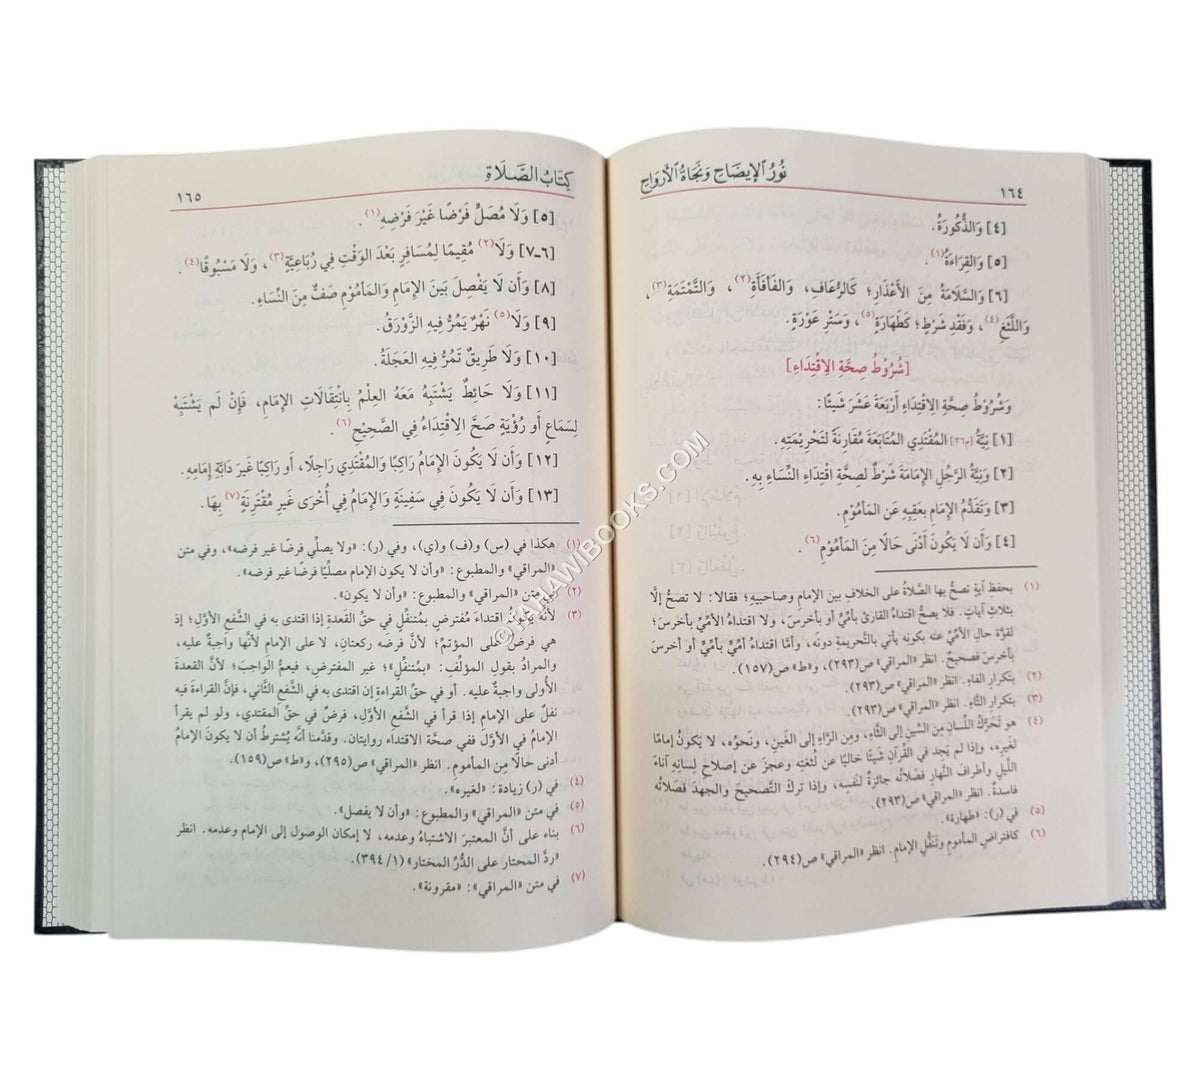 ١٦٤
نُورُ ٱلإِيضَاحِ وَنَجَاةُ ٱلأَرْوَاحِ
[٤] وَالذُّكُورَةُ.
[٥] وَالقِرَاءَةُ(١).
[٦] وَالسَّلَامَةُ مِنَ الأَعْذَارِ؛ كَالرُّعَافِ، وَالفَأْفَأَةِ(٢)، وَالتَّمْتَمَةِ(٣)،
وَاللَّثَغِ(٤)، وَفَقْدِ شَرْطٍ؛ كَطَهَارَةٍ(٥)، وَسَتْرِ عَوْرَةٍ.
[شُرُوطُ صِحَّةِ الِاقْتِدَاءِ]
وَشُرُوطُ صِحَّةِ الِاقْتِدَاءِ أَرْبَعَةَ عَشَرَ شَيْئًا:
[١] نِيَّةُ [م٢٦] المُقْتَدِي المُتَابَعَةَ مُقَارِنَةً لِتَحْرِيمَتِهِ.
[٢] وَنِيَّةُ الرَّجُلِ الإِمَامَةَ شَرْطٌ لِصِحَّةِ اقْتِدَاءِ النِّسَاءِ بِهِ.
[٣] وَتَقَدُّمُ الإِمَامِ بِعَقِبِهِ عَنِ المَأْمُومِ.
[٤] وَأَن لَا يَكُونَ أَدْنَى حَالًا مِنَ المَأْمُومِ(٦).
(١) بحفظِ آيةٍ تصحُّ بها الصَّلاةُ على الخلافِ بين الإمامِ وصاحبيهِ؛ فقالا: لا تصحُّ إلَّا
بثلاثِ آياتٍ. فلا يصحُّ اقتداءُ القارئِ بأمِّيٍّ أو بأخرسَ، ولا اقتداءُ الأمِّيِّ بأخرسَ؛
لقوَّة حالِ الأمِّيِّ عنه بكونه يأتي بالتَّحريمةِ دونَه، وأمَّا اقتداءُ أمِّيٍّ بأمِّيٍّ أو أخرسَ
بأخرسَ فصحيحٌ. انظر «المراقي» ص(٢٩٣)، و«ط» ص(١٥٧).
(٢) بتكرارِ الفاءِ. انظر «المراقي» ص(٢٩٣).
(٣) بتكرارِ التَّاءِ. انظر «المراقي» ص(٢٩٣).
(٤) هو تحرُّكُ اللِّسانِ مِن السِّينِ إلى الثَّاءِ، ومِن الرَّاءِ إلى الغَينِ، ونحوُه، لا يَكونُ إمامًا
لغيرِه، وإذا لم يَجِد في القُرآن شيئًا خاليًا عن لُثغتِه وعجزَ عن إصلاحِ لِسانِه آناءَ
اللَّيلِ وأطرافَ النَّهارِ فصلاتُه جائزةٌ لنفسِه، وإذا تركَ التَّصحيحَ والجهدَ فصلاتُه
فاسدةٌ. انظر «المراقي» ص(٢٩٣).
(٥) في (ر): «طهارة».
(٦) كافتراضِ المأمومِ وتَنفُّلِ الإمامِ. انظر «المراقي» ص(٢٩٤).
كِتَابُ الصَّلَاةِ
١٦٥
[٥] وَلَا مُصَلٍّ فَرْضًا غَيْرَ فَرْضِهِ(١).
[٦ـ٧] وَلَا(٢) مُقِيمًا لِمُسَافِرٍ بَعْدَ الوَقْتِ فِي رُبَاعِيَّةٍ(٣)، وَلَا مَسْبُوقًا(٤).
[٨] وَأَن لَا يَفْصِلَ بَيْنَ الإِمَامِ وَالمَأْمُومِ صَفٌّ مِنَ النِّسَاءِ.
[٩] وَلَا(٥) نَهْرٌ يَمُرُّ فِيهِ الزَّوْرَقُ.
[١٠] وَلَا طَرِيقٌ تَمُرُّ فِيهِ العَجَلَةُ.
[١١] وَلَا حَائِطٌ يَشْتَبِهُ مَعَهُ العِلْمُ بِانْتِقَالَاتِ الإِمَامِ، فَإِنْ لَم يَشْتَبِهْ
لِسَمَاعٍ أَو رُؤْيَةٍ صَحَّ الِاقْتِدَاءُ فِي الصَّحِيحِ(٦).
[١٢] وَأَن لَا يَكُونَ الإِمَامُ رَاكِبًا وَالمُقْتَدِي رَاجِلًا، أَو رَاكِبًا غَيرَ دَابَّةِ إِمَامِهِ.
[١٣] وَأَن لَا يَكُونَ فِي سَفِينَةٍ وَالإِمَامُ فِي أُخْرَى غَيرِ مُقْتَرِنَةٍ(٧) بِهَا.
(١) هكذا في (س) و(ف) و(ي)، وفي (ر): «ولا يصلِّي فرضًا غير فرضه»، وفي متن
«المراقي» والمطبوع: «وأن لا يكون الإمام مصلِّيًا فرضًا غير فرضه».
(٢) في متن «المراقي» والمطبوع: «وأن لا يكون».
(٣) لأنَّه يكونُ اقتداءَ مُفترضٍ بمُتنفِّلٍ في حقِّ القَعدةِ إذا اقتدى به في الشَّفعِ الأوَّلِ؛ إذ
هي فرضٌ على المؤتمِّ؛ لأنَّ فرضَه ركعتانِ، لا على الإمامِ لأنَّها واجبةٌ عليه،
والمرادُ بقولِ المؤلِّفِ: «بمُتنفِّلٍ»؛ غير المفترضِ، فيعمُّ الواجبَ؛ لأنَّ القعدةَ
الأُولى واجبةٌ عليه. أو في حقِّ القراءةِ إن اقتدى به في الشَّفعِ الثَّاني، فإنَّ القراءةَ فيه
نفلٌ على الإمامِ إذا قرأ في الشَّفعِ الأوَّلِ، فرضٌ في حقِّ المقتدي، ولو لم يقرأ
الإمامُ في الأوَّلِ ففي صحَّة الاقتداءِ روايتان. وقدَّمنا أنَّه يُشترطُ أن لا يكونَ الإمامُ
أدنى حالًا مِن المأمومِ. انظر «المراقي» ص(٢٩٥)، و«ط» ص(١٥٩).
(٤) في (ر) زيادة: «لغيره».
(٥) في متن «المراقي» والمطبوع: «وأن لا يفصل».
(٦) بناء على أنَّ المعتبرَ الاشتباهُ وعدمه، لا إمكان الوصول إلى الإمام وعدمه. انظر
«ردَّ المحتار على الدُّرِّ المختار» (٣٩٤/١).
(٧) في متن «المراقي»: «مقرونة».
©TAHAWIBOOKS.COM